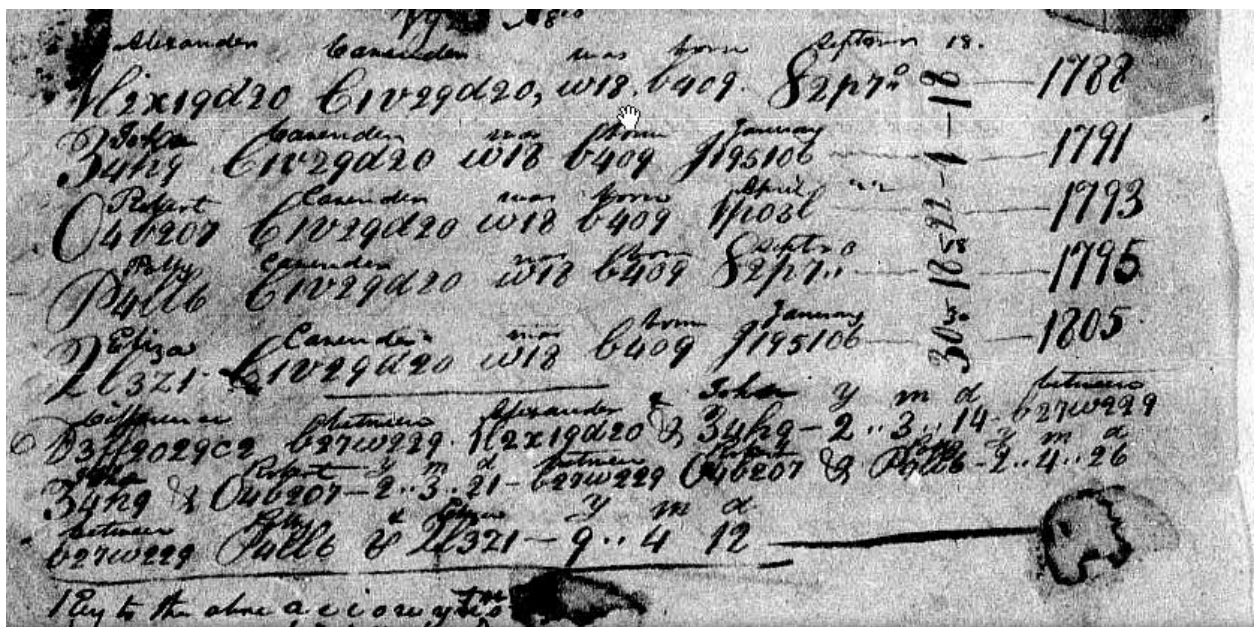 Alexander Cavender was born Septemr 18.
1l2x19d20 C1v29d20, w18 b409. S2p7 — 18 — 1788
John Cavender was born January
J4h9 C1v29d20 w18 b409 J195106 — 1 — 1791
Robert Cavender was born April 22
O4b207 C1v29d20 w18 b409 1p03l — 22 — 1793
Polly Cavender was born Septr 18
P4ll6 C1v29d20 w18 b409 S2p7.. — 18 — 1795
Eliza Cavender was born January 30
2l3z1 C1v29d20 w18 b409 J195106 — 30 — 1805
Difference between Alexander & John y m d between
D3ff2029c2 b27w229 1l2x19d20 & J4h9 – 2..3..14 – b27w229
John Robert y m d between Robert Polly y m d
J4h9 & O4b207 – 2..3..21 – b27w229 O4b207 & P4ll6 – 2..4..26
between Polly & y m d
b27w229 P4ll6 & 2l3z1 – 9..4 12
Key to the above a e i o u y